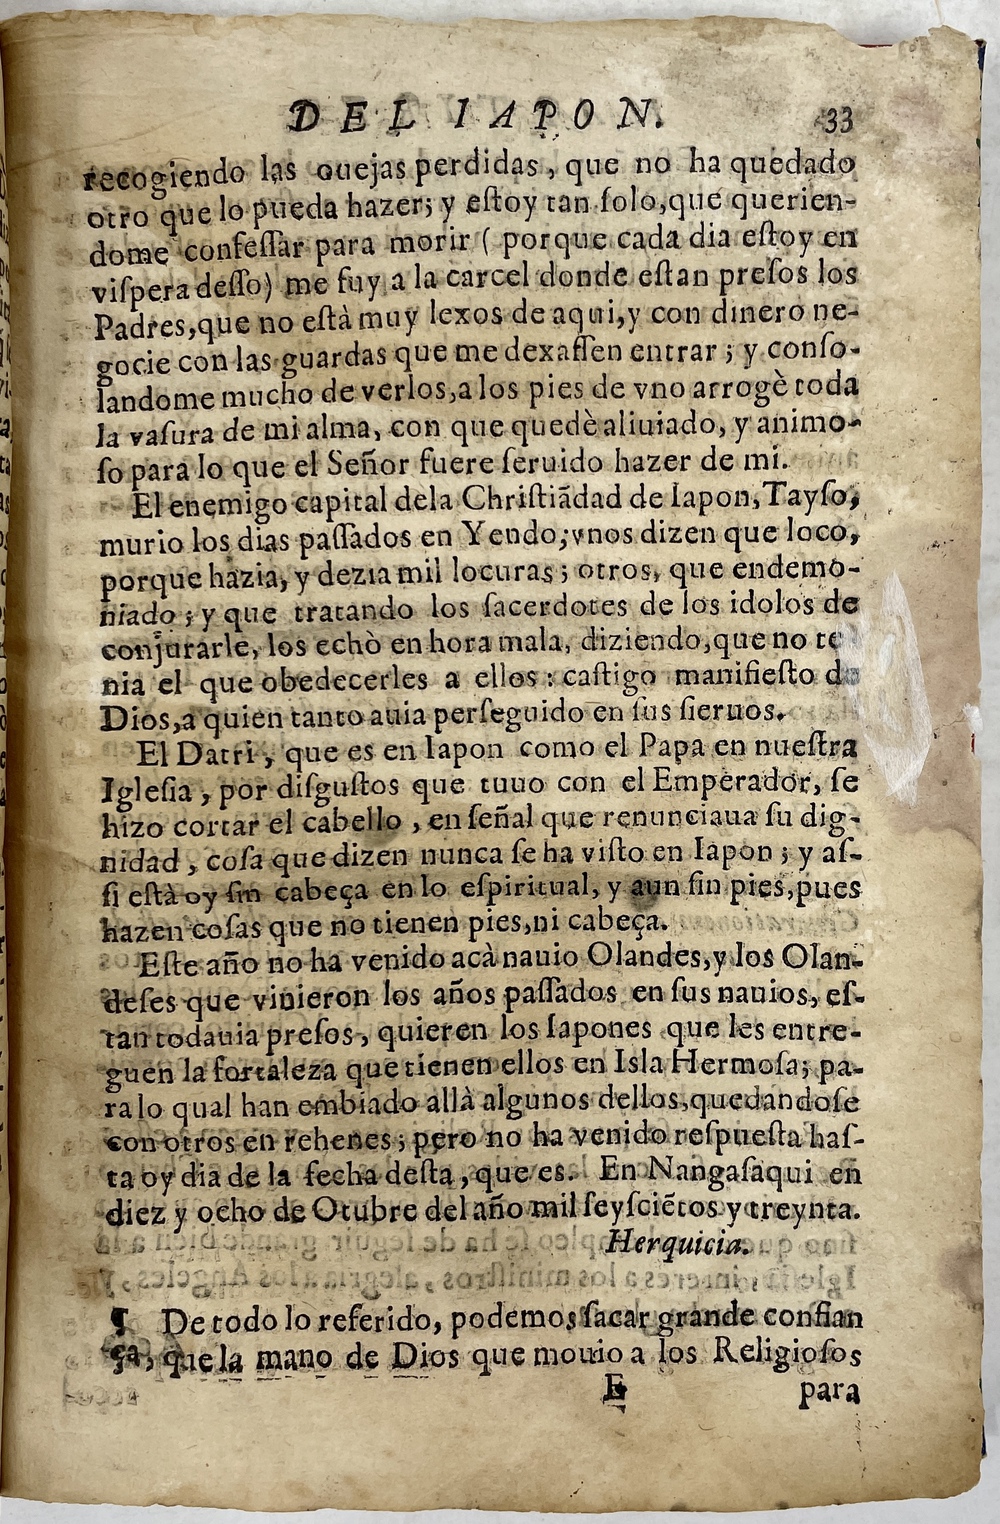 DEL IAPON. 33
recogiendo las ouejas perdidas, que no ha quedado
otro que lo pueda hazer; y eſtoy tan ſolo, que querien-
dome confeſſar para morir ( porque cada dia eſtoy en
viſpera deſſo) me fuy a la carcel donde eſtan preſos los
Padres, que no eſtà muy lexos de aqui, y con dinero ne-
gocie con las guardas que me dexaſſen entrar; y conſo-
landome mucho de verlos, a los pies de vno arrogè toda
la vaſura de mi alma, con que quedè aliuiado, y animo-
ſo para lo que el Señor fuere ſeruido hazer de mi.
El enemigo capital dela Chriſtiãdad de Iapon, Tayſo,
murio los dias paſſados en Yendo; vnos dizen que loco,
porque hazia, y dezia mil locuras; otros, que endemo-
niado; y que tratando los ſacerdotes de los idolos de
conjurarle, los echò en hora mala, diziendo, que no te
nia el que obedecerles a ellos: caſtigo manifieſto de
Dios, a quien tanto auia perſeguido en ſus ſieruos.
El Datri, que es en Iapon como el Papa en nueſtra
Igleſia, por diſguſtos que tuuo con el Emperador, ſe
hizo cortar el cabello, en ſeñal que renunciaua ſu dig-
nidad, coſa que dizen nunca ſe ha viſto en Iapon; y aſ-
ſi eſtà oy ſin cabeça en lo eſpiritual, y aun ſin pies, pues
hazen coſas que no tienen pies, ni cabeça.
Eſte año no ha venido acà nauio Olandes, y los Olan-
deſes que vinieron los años paſſados en ſus nauios, eſ-
tan todauia preſos, quieren los Iapones que les entre-
guen la fortaleza que tienen ellos en Isla Hermoſa; pa-
ra lo qual han embiado allà algunos dellos, quedandoſe
con otros en rehenes; pero no ha venido reſpueſta haſ-
ta oy dia de la fecha deſta, que es. En Nangaſaqui en
diez y ocho de Otubre del año mil ſeyſciẽtos y treynta.
Herquicia.
¶ De todo lo referido, podemos ſacar grande confian
ça, que la mano de Dios que mouio a los Religioſos
E para